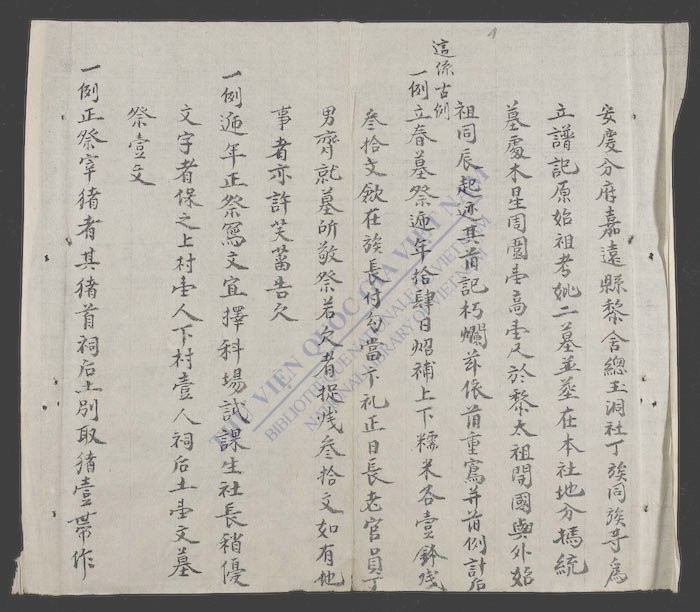 1
安慶分府嘉遠縣黎舍總玉洞社丁族同族等為
立譜記原始祖考妣二墓並葬在本社地分榪統
墓處木星周圍壹高壹尺於黎太祖開國與外始
祖同辰起迹其前記朽爛茲依前重寫并前例計后
這係古例
一例立春墓祭遞年拾肆日炤補上下糯米各壹鉢錢
叁拾文歛在族長付勾當卞礼正日長老官員丁
男齊就墓所敬祭若欠者捉錢叁拾文如有他
事者亦許芙蒥告欠
一例遞年正祭寫文宜擇科場試課生社長稍優
文字者保之上村壹人下村壹人祠后土壹文墓
祭壹文
一例正祭宰猪者其猪首祠后土別取猪壹帶作
THƯ VIỆN QUỐC GIA VIỆT NAM
BIBLIOTHEQUE NATIONALE DU VIETNAM
NATIONAL LIBRARY OF VIETNAM